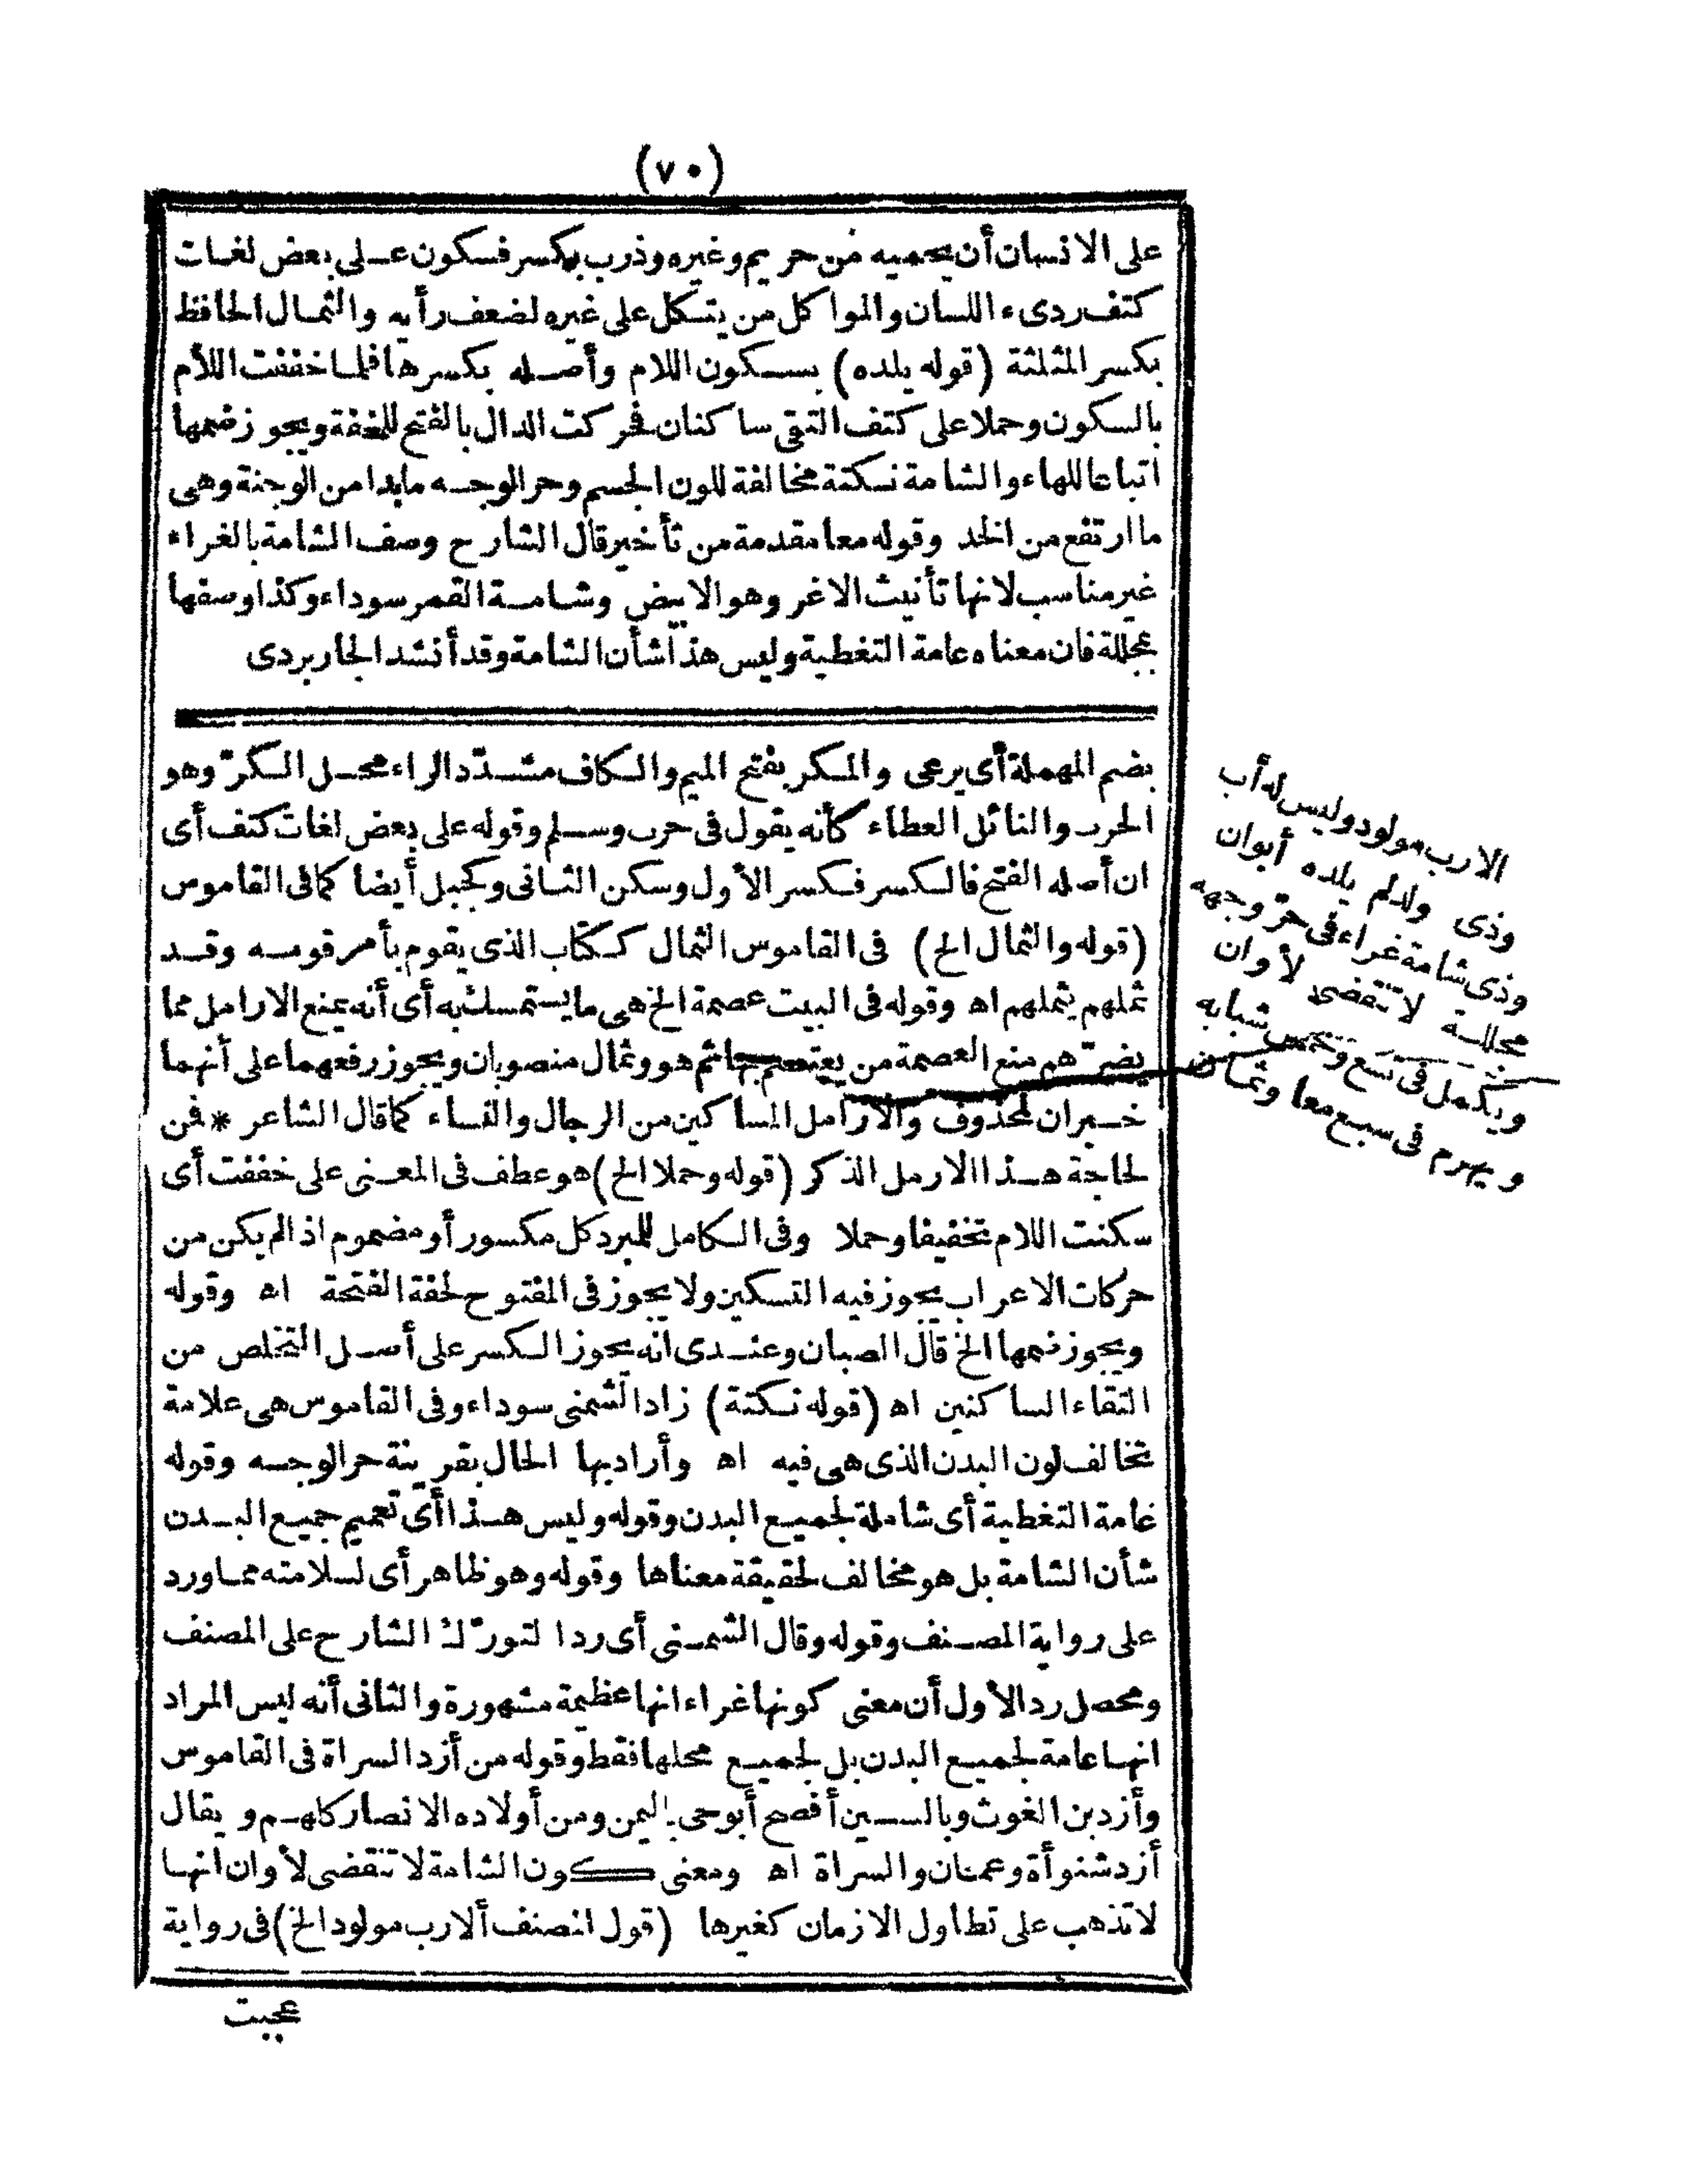 (٧٠)
على الانسان أن يحميه من حريم وغيره وذرب بكسر فسكون على بعض لغات
كتف ردىء اللسان والمواكل من يتكل على غيره لضعف رأيه والثمال الحافظ
بكسر المثلثة (قوله يلده) بسكون اللام وأصله بكسرها فلما خففت اللأم
بالسكون وحملا على كتف التقى ساكنان فحركت الدال بالفتح للخفة ويجوز ضمها
اتباعا للهاء والشامة نكتة مخالفة للون الجسم وحر الوجه مابدا من الوجنة وهى
ما ارتفع من الخد وقوله معا مقدمة من تأخير قال الشارح وصف الشامة بالغراء
غير مناسب لانها تأنيث الاغر وهو الابيض وشامة القمر سوداء وكذا وصفها
بمجللة فان معناه عامة التغطية وليس هذا شأن الشامة وقد أنشد الجاربردى
بضم المهملة أى يرعى والمكر بفتح الميم والكاف مشدّد الراء محل الكرّ وهو
الحرب والنائل العطاء كأنه يقول فى حرب وسلم وقوله على بعض لغات كتف أى
ان أصله الفتح فالكسر فكسر الأول وسكن الثانى وكجبل أيضا كما فى القاموس
(قوله والثمال الخ) فى القاموس الثمال ككتاب الذى يقوم بأمر قومه وقد
ثملهم يثملهم اه وقوله فى البيت عصمة الخ هى مايستمسك به أى أنه يمنع الارامل مما
يضرّهم منع العصمة من يعتصم بها ثم هو وثمال منصوبان ويجوز رفعهما على أنهما
خبران لمحذوف والأرامل المساكين من الرجال والنساء كما قال الشاعر * فمن
لحاجة هذا الارمل الذكر (قوله وحملا الخ) هو عطف فى المعنى على خففت أى
سكنت اللام تخفيفا وحملا وفى الكامل للمبرد كل مكسور أو مضموم اذا لم يكن من
حركات الاعراب يجوز فيه التسكين ولا يجوز فى المفتوح لخفة الفتحة اه وقوله
ويجوز ضمها الخ قال الصبان وعندى انه يجوز الكسر على أصل التخلص من
التقاء الساكنين اه (قوله نكتة) زاد الشمنى سوداء وفى القاموس هى علامة
تخالف لون البدن الذى هى فيه اه وأراد بها الخال بقرينة حر الوجه وقوله
عامة التغطية أى شاملة لجميع البدن وقوله وليس هذا أى تعميم جميع البدن
شأن الشامة بل هو مخالف لحقيقة معناها وقوله وهو ظاهر أى لسلامته مما ورد
على رواية المصنف وقوله وقال الشمنى أى ردا لتورّك الشارح على المصنف
ومحصل رد الأول أن معنى كونها غراء انها عظيمة مشهورة والثانى أنه ليس المراد
انها عامة لجميع البدن بل لجميع محلها فقط وقوله من أزد السراة فى القاموس
وأزد بن الغوث وبالسين أفصح أبو حى باليمن ومن أولاده الانصار كلهم ويقال
أزد شنوأة وعمان والسراة اه ومعنى كون الشامة لا تنقضى لأوان انها
لا تذهب على تطاول الازمان كغيرها (قول المصنف ألارب مولود الخ) فى رواية
عجبت
الارب مولود وليس له أب
وذى ولد لم يلده أبوان
وذى شامة غراء فى حرّ وجهه
مجللة لا تنقضى لأوان
ويكمل فى تسع وخمس شبابه
ويهرم فى سبع معا وثمان